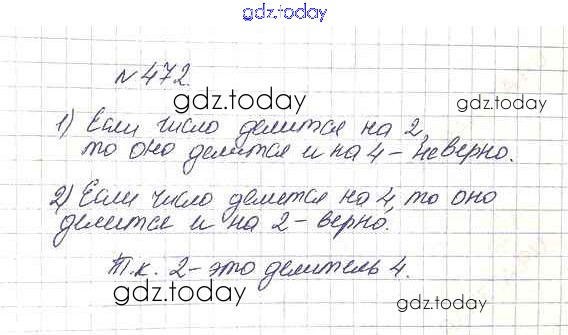 gdz.today
№472.
gdz.today
1) Если число делится на 2,
то оно делится и на 4 – неверно.
gdz.today
2) Если число делется на 4, то оно
делится и на 2 – верно.
Т.к. 2 – это делитель 4.
gdz.today
gdz.today